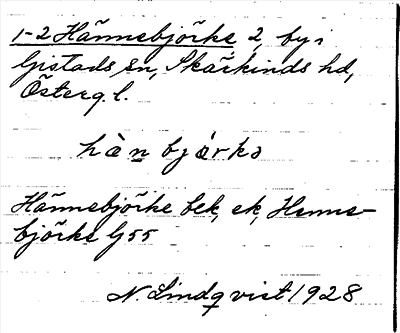 1-2 Hännebjörke, 2, by i
Gistads sn, Skärkinds hd,
Österg. l.
hän bjərkə
Hännebjörke bek, ek, Henne-
björke G 55
N. Lindqvist 1928